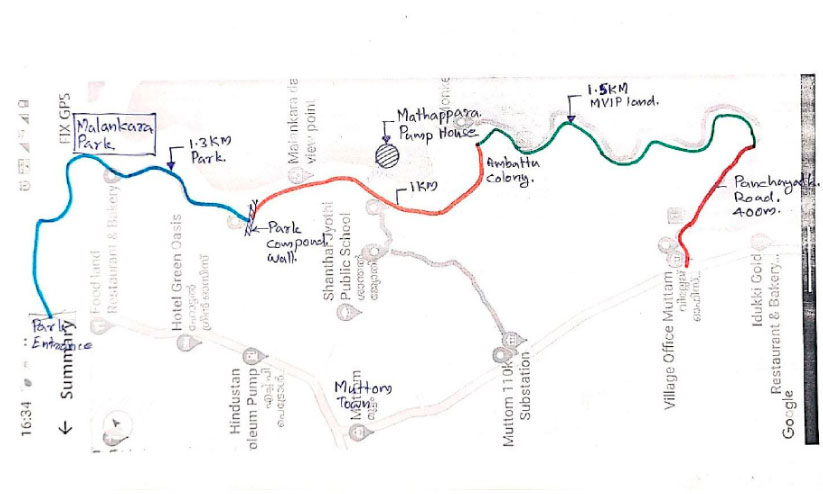 16:34
FIX GPS
← Summary
Malankara
Park.
1.3KM
Park.
Park
Entrance
Food land
Restaurant & Bakery
Hotel Green Oasis
Park
Compound
Wall.
Malankara da
view point
Mathappara
Pump House
Monke
1.5KM
MVIP land.
Ambattu
Colony.
1KM
Shanthal Jyothi
Public School
Hindustan
oleum Pump
Muttom
Town
Muttom 110K
Substation
Panchayath
Road.
400m.
Village Office Muttam
Idukki Gold
Restaurant & Bakery...
Google